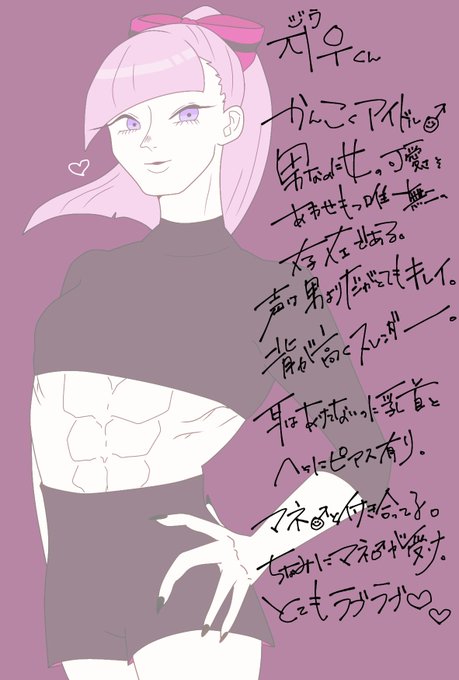 ジウ
지우くん
かんこくアイドル♂
男なのに女の可愛を
あわせもつ唯一無二の
存在である。
声は男よりだがとてもキレイ。
背が高くスレンダー。
耳はあけてないのに乳首と
へそにピアス有り。
マネ♂と付き合ってる。
ちなみにマネ♂が受け。
とてもラブラブ♡♡